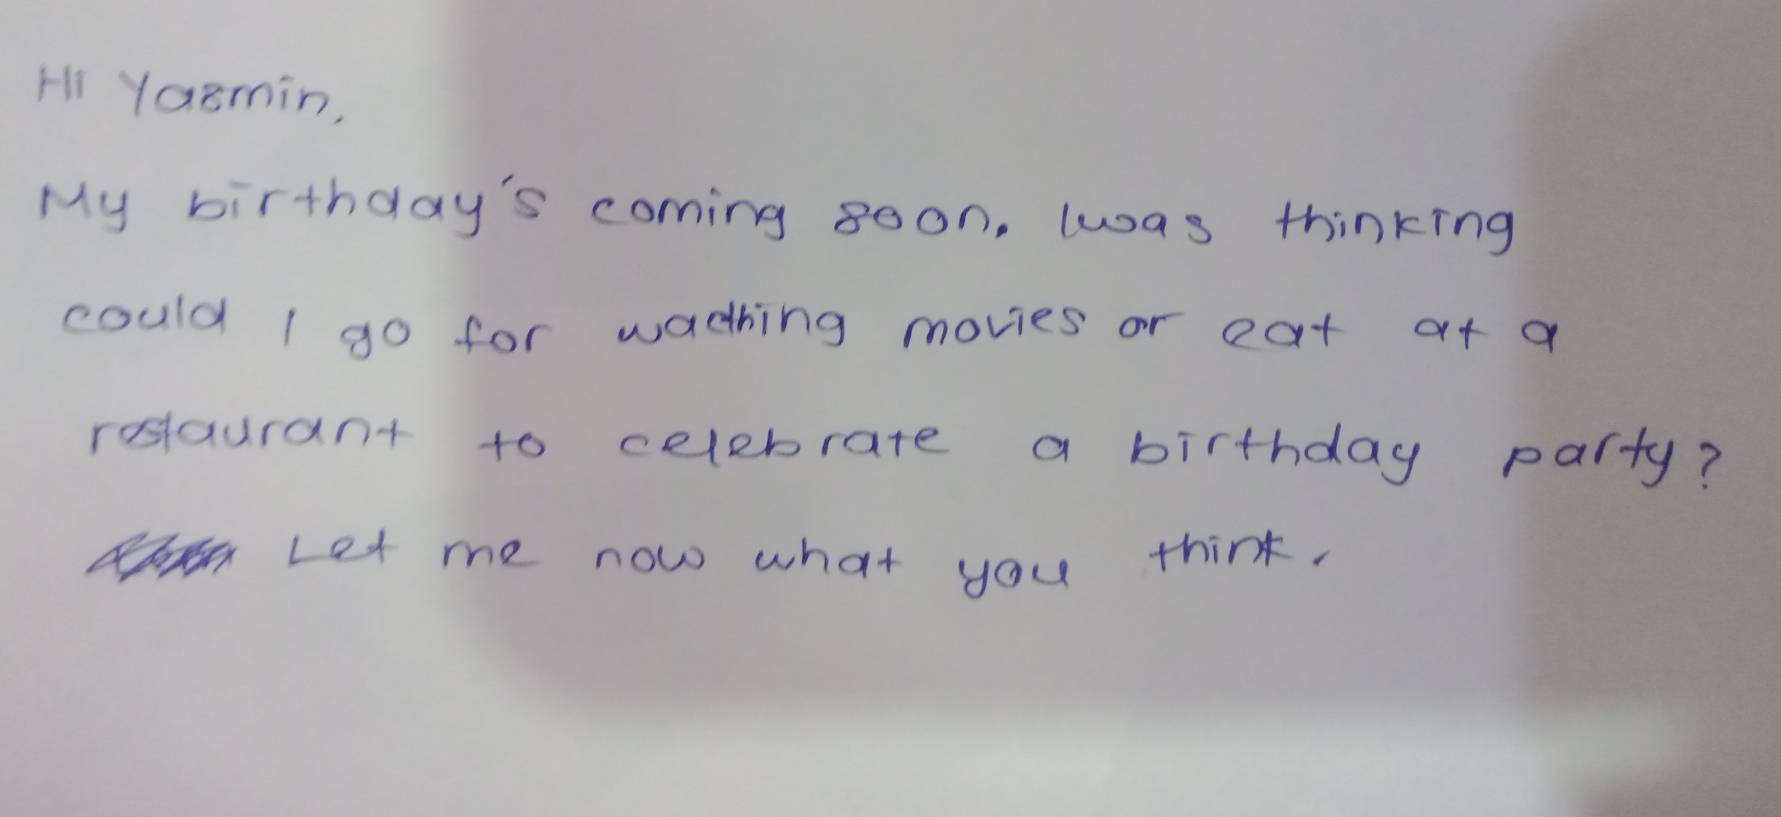 Hi Yazmin,
My birthday's coming soon. I was thinking
could I go for wacthing movies or eat at a
restaurant to celebrate a birthday party?
Let me now what you think.